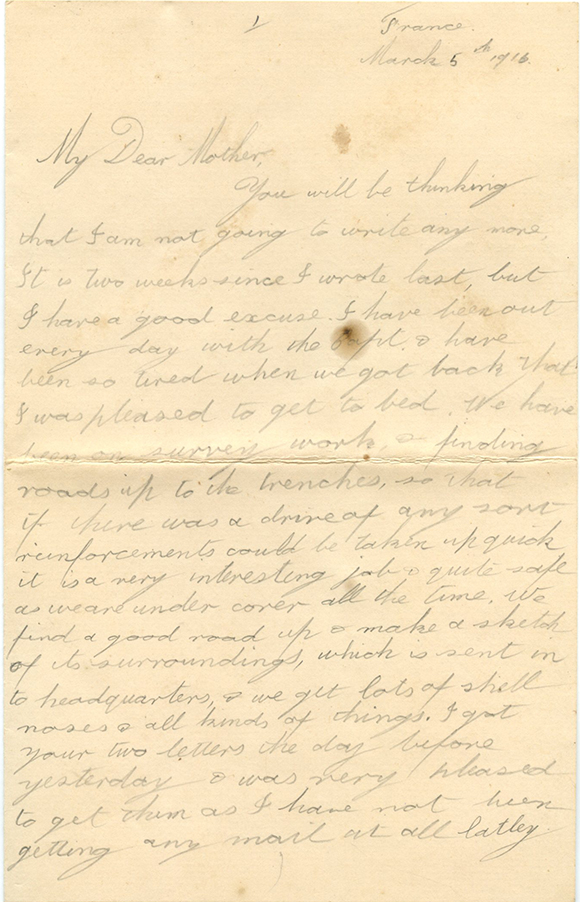 1
France.
March 5th 1916.
My Dear Mother,
You will be thinking
that I am not going to write any more.
It is two weeks since I wrote last, but
I have a good excuse. I have been out
every day with the & have
been so tired when we got back that
I was pleased to get to bed. We have
been on survey work, & finding
roads up to the trenches, so that
if there was a drive of any sort
reinforcements could be taken up quick
it is a very interesting job & quite safe
as we are under cover all the time. We
find a good road up & make a sketch
of its surroundings, which is sent in
to headquarters, & we get lots of shell
noses & all kinds of things. I got
your two letters the day before
yesterday & was very pleased
to get them as I have not been
getting any mail at all latley.